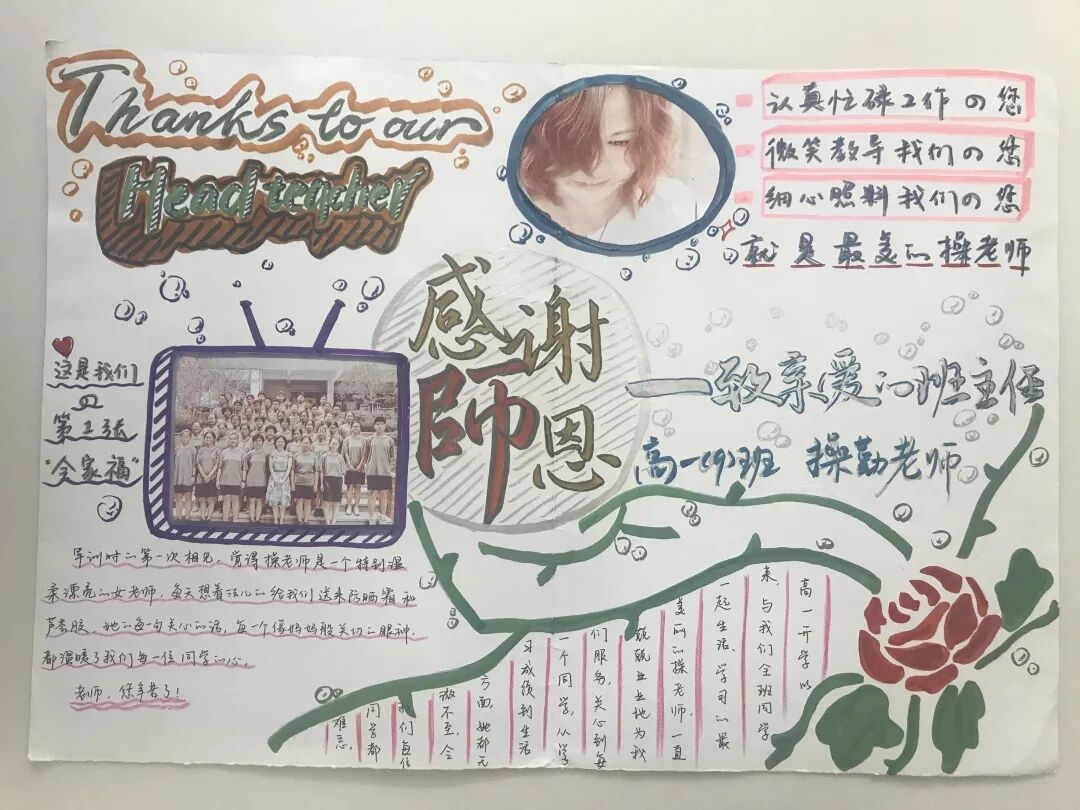 Thanks to our
Head teacher
认真忙碌工作の您
微笑教导我们の您
细心照料我们の您
就是最美的操老师
感谢
師恩
一致亲爱的班主任
高一(9)班 操勤老师
这是我们
の
第一张
"全家福"
军训时的第一次相见，觉得操老师是一个特别温
柔漂亮的女老师，每天想着法儿的给我们送来防晒霜和
芦荟胶，她的每一句关心的话，每一个像妈妈般关切的眼神，
都温暖了我们每一位同学的心。
老师，您辛苦了！
高一开学以
来，与我们全班同学
一起生活、学习的最
美丽的操老师，一直
兢兢业业地为我
们服务，关心到每
一个同学，从学
习成绩到生活
方面，她都无
微不至，令
我们每位
同学都
难忘。